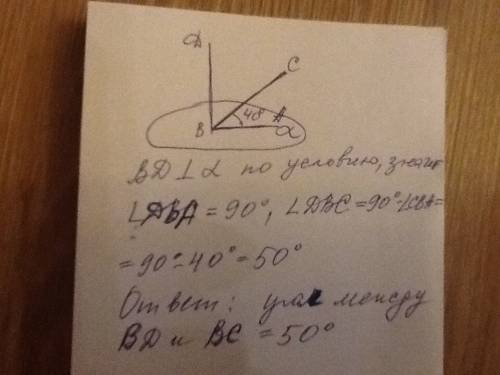 D
C
40
A
B
α
BD ⊥ α по условию, значит
∠DBA = 90°, ∠DBC = 90° - ∠CBA =
= 90° - 40° = 50°
Ответ: угол между
BD и BC = 50°